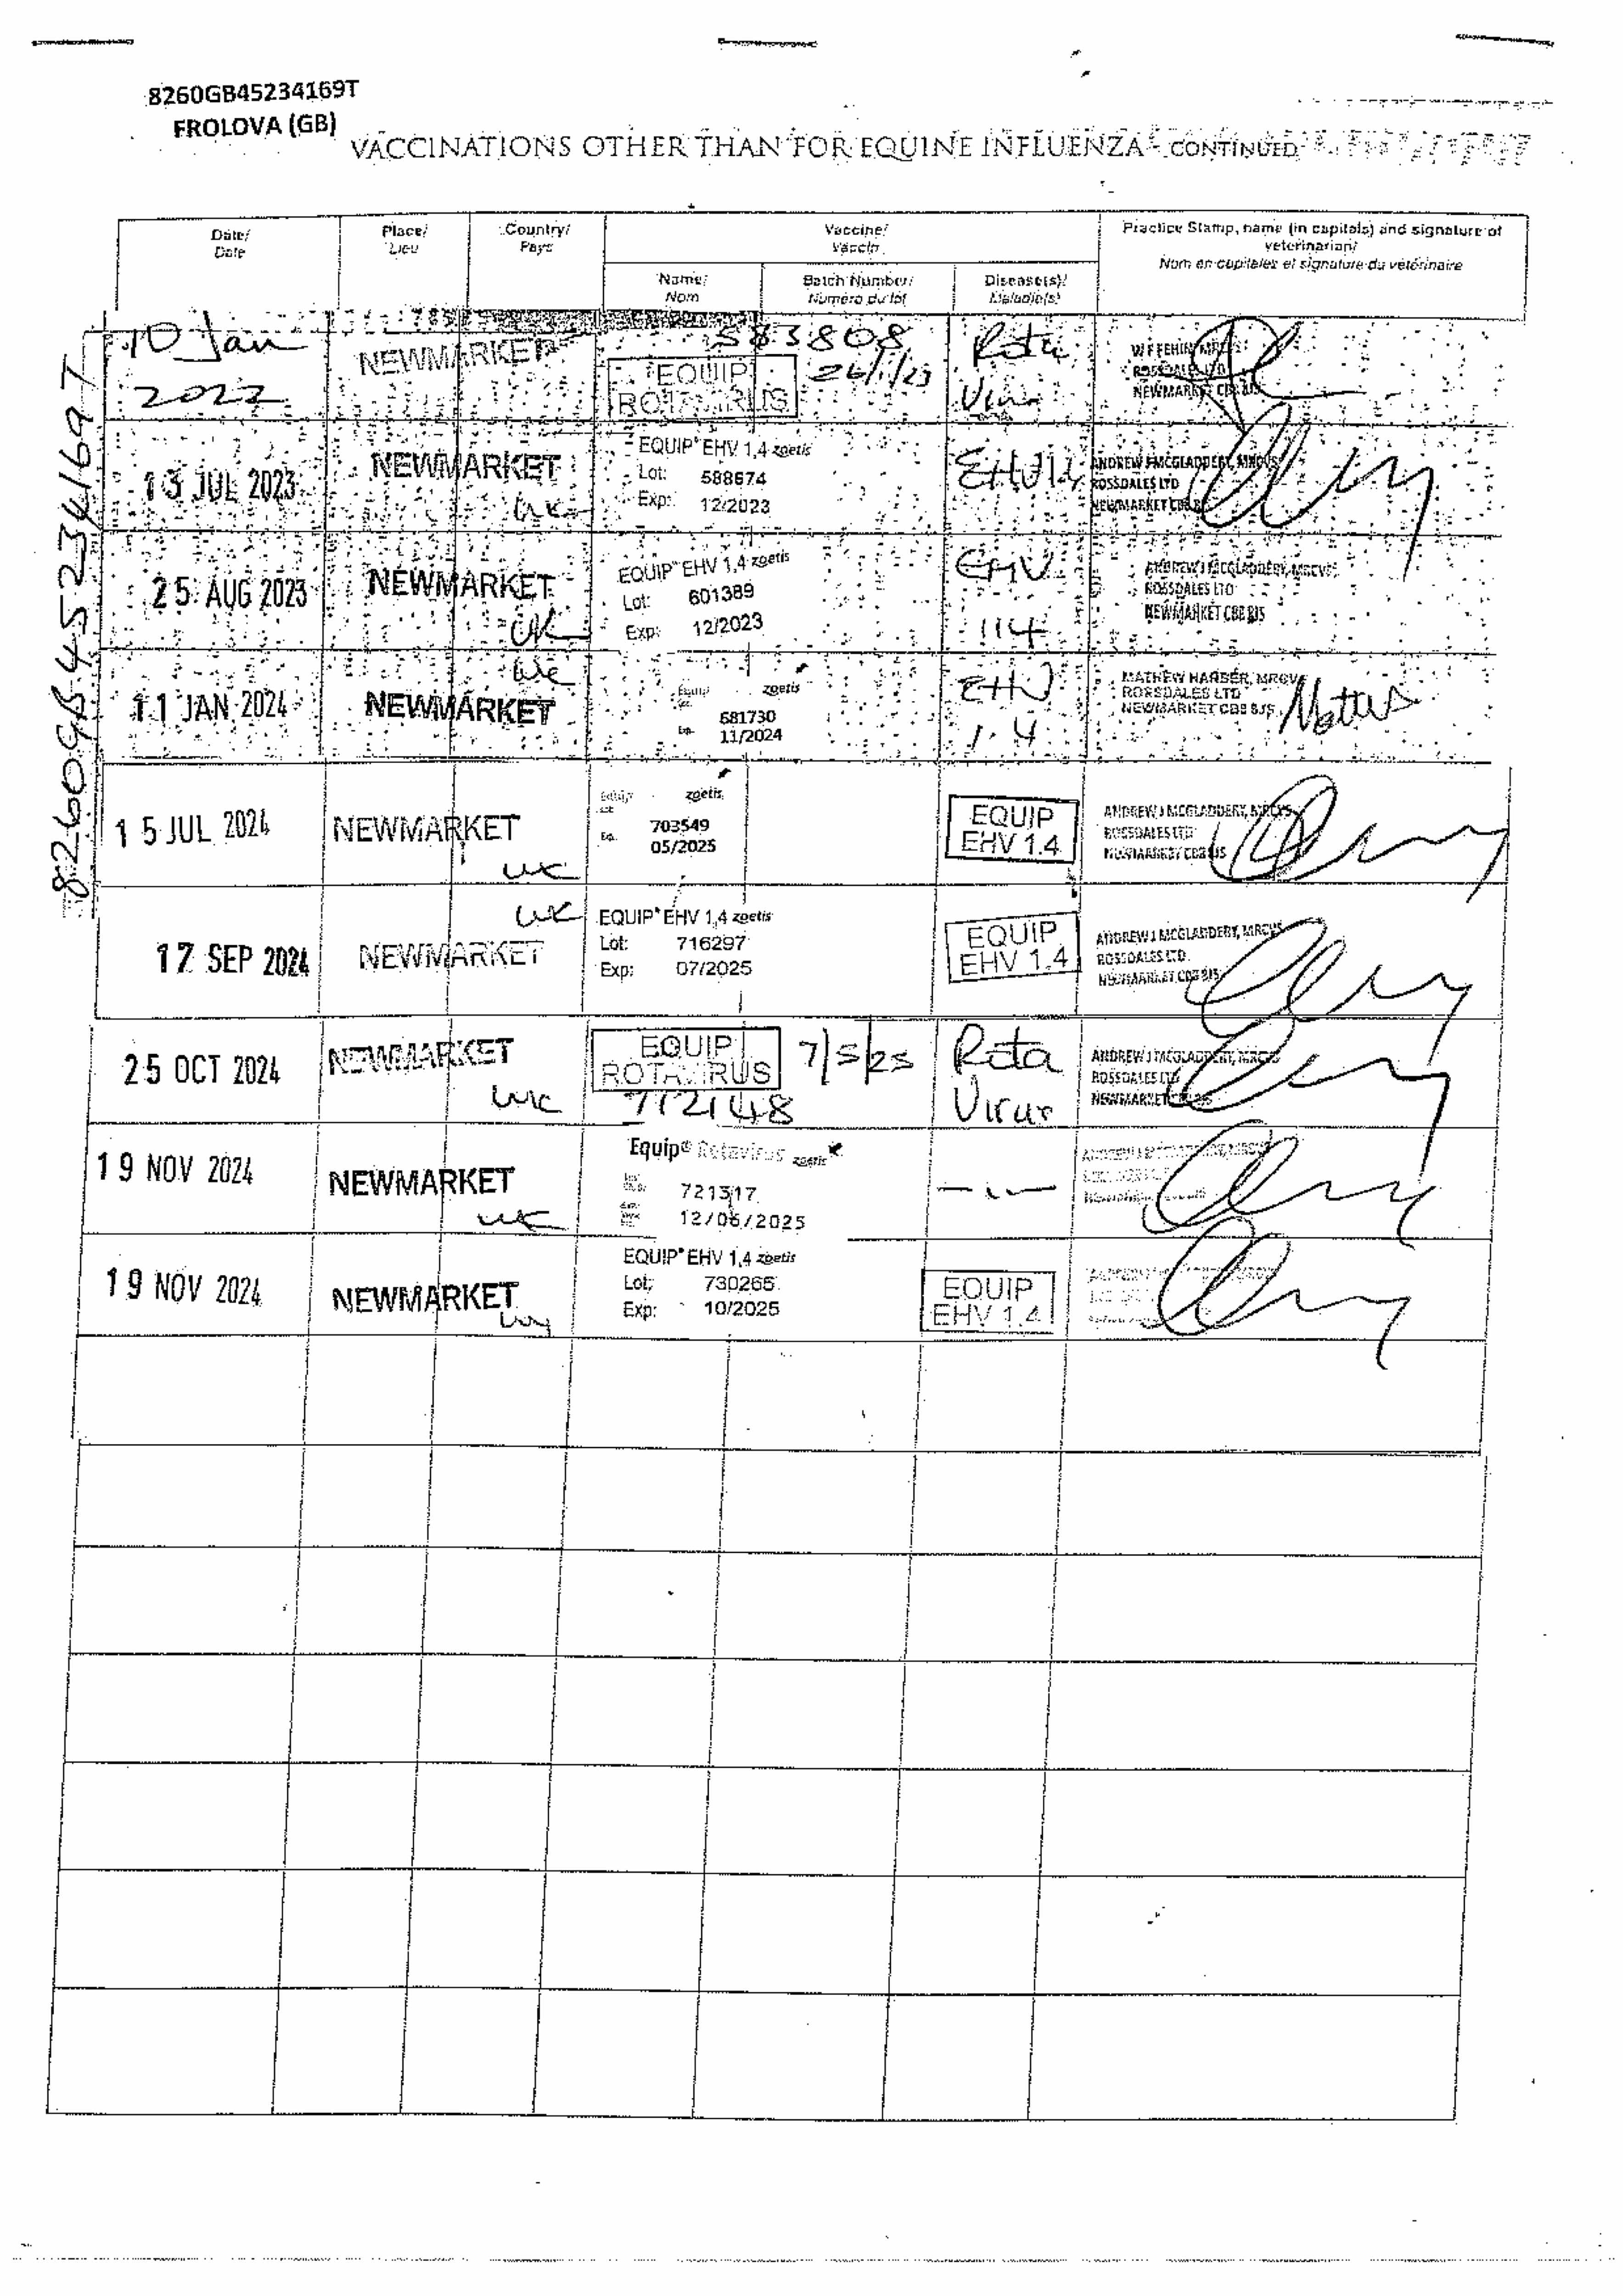 8260GB45234169T
FROLOVA (GB)
VACCINATIONS OTHER THAN FOR EQUINE INFLUENZA - CONTINUED
Date/
Date
Place/
Lieu
Country/
Pays
Vaccine/
Vaccin
Practice Stamp, name (in capitals) and signature of
veterinarian/
Nom en capitales et signature du vétérinaire
Name/
Nom
Batch Number/
Numéro du lot
Disease(s)/
Maladie(s)
8260GB45234169T
10 Jan
2022
NEWMARKET
EQUIP
ROTAVIRUS
583808
26/1/23
Rota
Virus
ROSSDALES LTD
NEWMARKET CB8 8JS
13 JUL 2023
NEWMARKET
UK
EQUIP® EHV 1,4 zoetis
Lot: 588674
Exp: 12/2023
ANDREW J MCGLADDERY, MRCVS
ROSSDALES LTD
NEWMARKET CB8 8JS
25 AUG 2023
NEWMARKET
UK
EQUIP® EHV 1,4 zoetis
Lot: 601389
Exp: 12/2023
EHV
1,4
ANDREW J MCGLADDERY, MRCVS
ROSSDALES LTD
NEWMARKET CB8 8JS
11 JAN 2024
NEWMARKET
UK
Equip zoetis
681730
Exp. 11/2024
EHV
1.4
MATHEW HARBER, MRCVS
ROSSDALES LTD
NEWMARKET CB8 8JS
15 JUL 2024
NEWMARKET
UK
Equip zoetis
703549
Exp. 05/2025
EQUIP
EHV 1.4
ANDREW J MCGLADDERY, MRCVS
ROSSDALES LTD
NEWMARKET CB8 8JS
17 SEP 2024
NEWMARKET
UK
EQUIP® EHV 1,4 zoetis
Lot: 716297
Exp: 07/2025
EQUIP
EHV 1.4
ANDREW J MCGLADDERY, MRCVS
ROSSDALES LTD
NEWMARKET CB8 8JS
25 OCT 2024
NEWMARKET
UK
EQUIP
ROTAVIRUS
712148
7/5/25
Rota
Virus
ANDREW J MCGLADDERY, MRCVS
ROSSDALES LTD
NEWMARKET CB8 8JS
19 NOV 2024
NEWMARKET
UK
Equip® Rotavirus zoetis
721317
12/06/2025
19 NOV 2024
NEWMARKET
EQUIP® EHV 1,4 zoetis
Lot: 730265
Exp: 10/2025
EQUIP
EHV 1.4